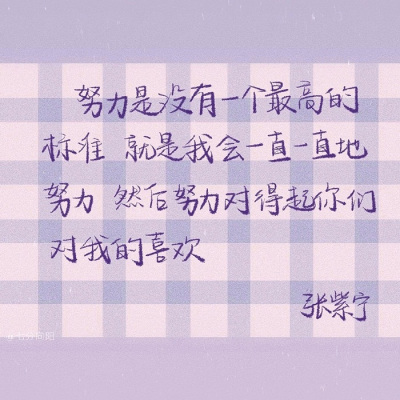 努力是没有一个最高的
标准 就是我会一直一直地
努力 然后努力对得起你们
对我的喜欢
张紫宁